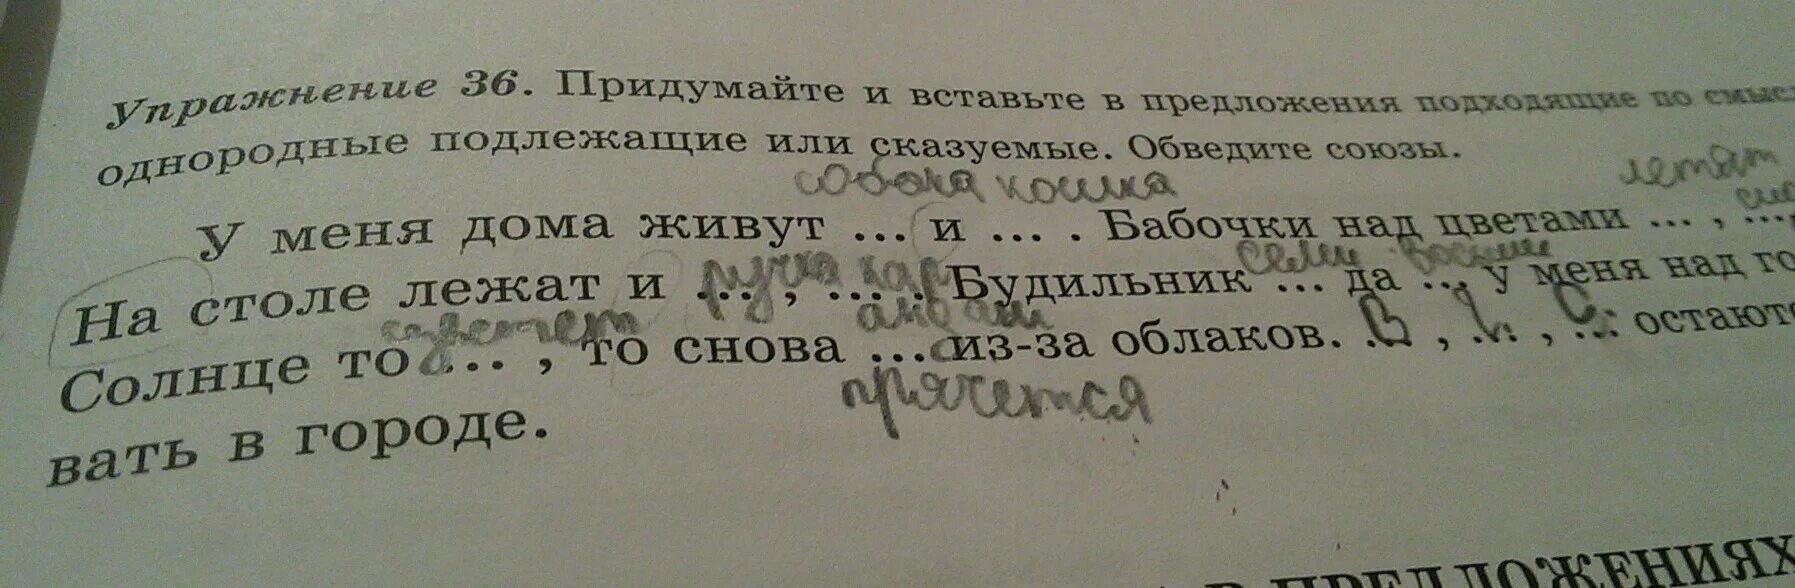 Упражнение 36. Придумайте и вставьте в предложения подходящие по смыс
однородные подлежащие или сказуемые. Обведите союзы.
собака кошка летят
У меня дома живут ... и ... . Бабочки над цветами ... , ...,
ручка кар
На столе лежат и ... , ... . Будильник ... да ... у меня над го
светет
Солнце то ... , то снова ... из-за облаков. В , , С остают
прячется
вать в городе.
В ПРЕДЛОЖЕНИЯХ